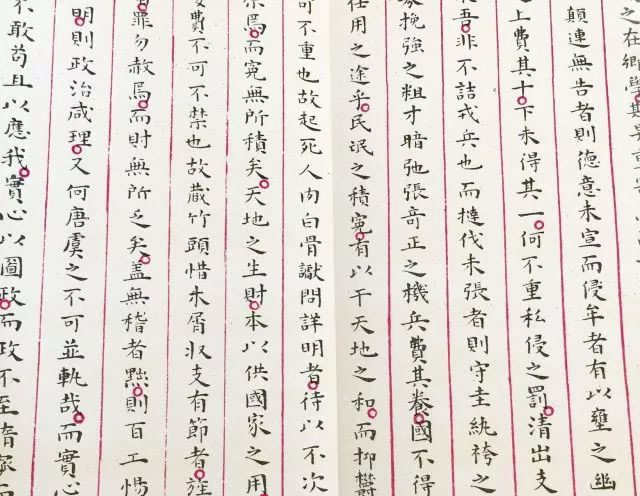 之在鄉學其
顛連無告者則德意未宣而侵牟者有以壅之幽
上費其十下未得其一何不重私侵之罰清出支
吾非不詰戎兵也而撻伐未張者則守圭紈袴之
挽強之粗才暗弛張奇正之機兵費其養國不得
任用之途乎民氓之積冤有以干天地之和而抑鬱
可不重也故起死人肉白骨讞問詳明者待以不次
焉而冤無所積矣天地之生財本以供國家之用
費不可不禁也故藏竹頭惜木屑收支有節者旌
罪勿赦焉而財無所乏矣盖無稽者黜則百工惕
明則政治咸理又何唐虞之不可並軌哉而實心
不敢苟且以應我實心以圖政而政不至惰寧而